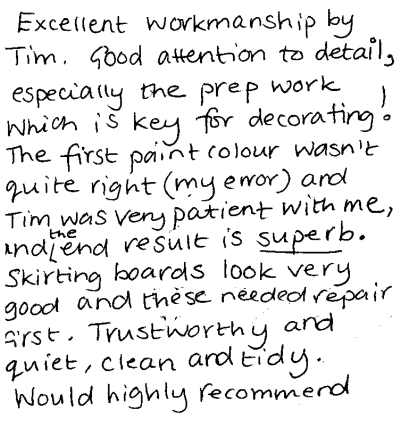 Excellent workmanship by
Tim. Good attention to detail,
especially the prep work
which is key for decorating!
The first paint colour wasn't
quite right (my error) and
Tim was very patient with me,
and the end result is superb.
Skirting boards look very
good and these needed repair
first. Trustworthy and
quiet, clean and tidy.
Would highly recommend